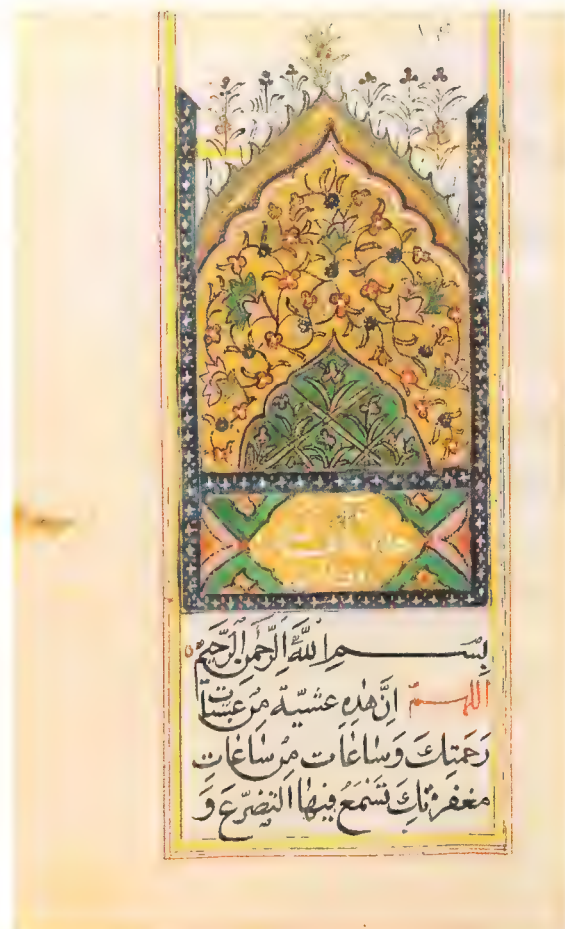 بِسْمِ اللهِ الرَّحْمٰنِ الرَّحِيْمِ
اللهم اِنَّ هٰذِهِ عَشِيّةَ مِنْ عَشيات
رَحْمَتِكَ وَسٰاعٰات مِنْ سٰاعٰاتِ
مغفرتكَ تَسْمَعُ فِيهٰا التضرّعَ وَ